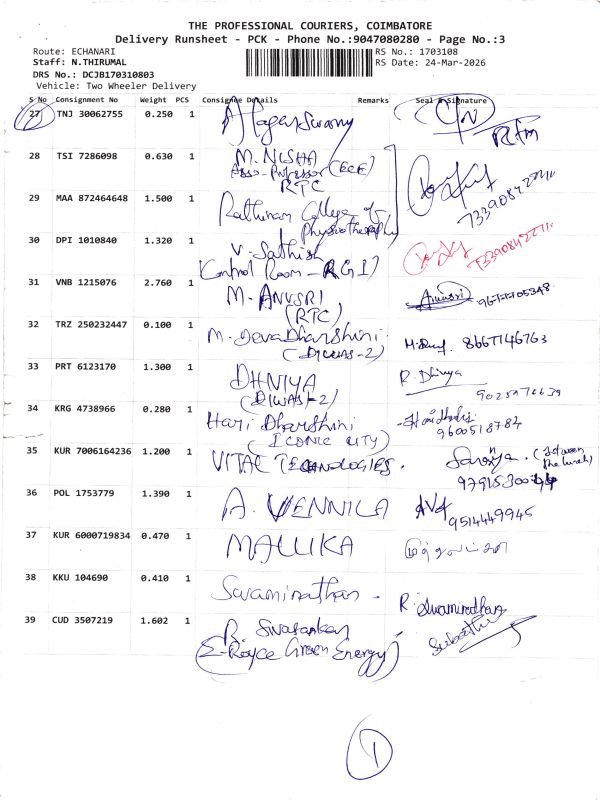 THE PROFESSIONAL COURIERS, COIMBATORE
Delivery Runsheet - PCK - Phone No.:9047080280 - Page No.:3
Route: ECHANARI RS No.: 1703108
Staff: N.THIRUMAL RS Date: 24-Mar-2026
DRS No.: DCJB170310803
Vehicle: Two Wheeler Delivery
S No Consignment No Weight PCS Consignee Details Remarks Seal & Signature
27 TNJ 30062755 0.250 1
28 TSI 7286098 0.630 1 M. NISHA
Asso-Professor (ECE)
RTC
29 MAA 872464648 1.500 1 Rathinam College of
Physiotherapy
30 DPI 1010840 1.320 1 V. Sathish
Control Room - RGI)
31 VNB 1215076 2.760 1 M. ANUSRI Anusri
(RTC)
32 TRZ 250232447 0.100 1 M. DevaDharshini 8667146763
(DIWAS-2)
33 PRT 6123170 1.300 1 DHNIYA R. Dhivya
(DIWAS-2)
34 KRG 4738966 0.280 1 Hari Dharshini 9600518784
(ICONIC CITY)
35 KUR 7006164236 1.200 1 VITAL TECHNOLOGIES. Saranya.
36 POL 1753779 1.390 1 A. VENNILA AVA 9514449945
37 KUR 6000719834 0.470 1 MALLIKA
38 KKU 104690 0.410 1 Swaminathan - R. Swaminathan
39 CUD 3507219 1.602 1 R. Sivasankar
(E-Royce Green Energy)
1